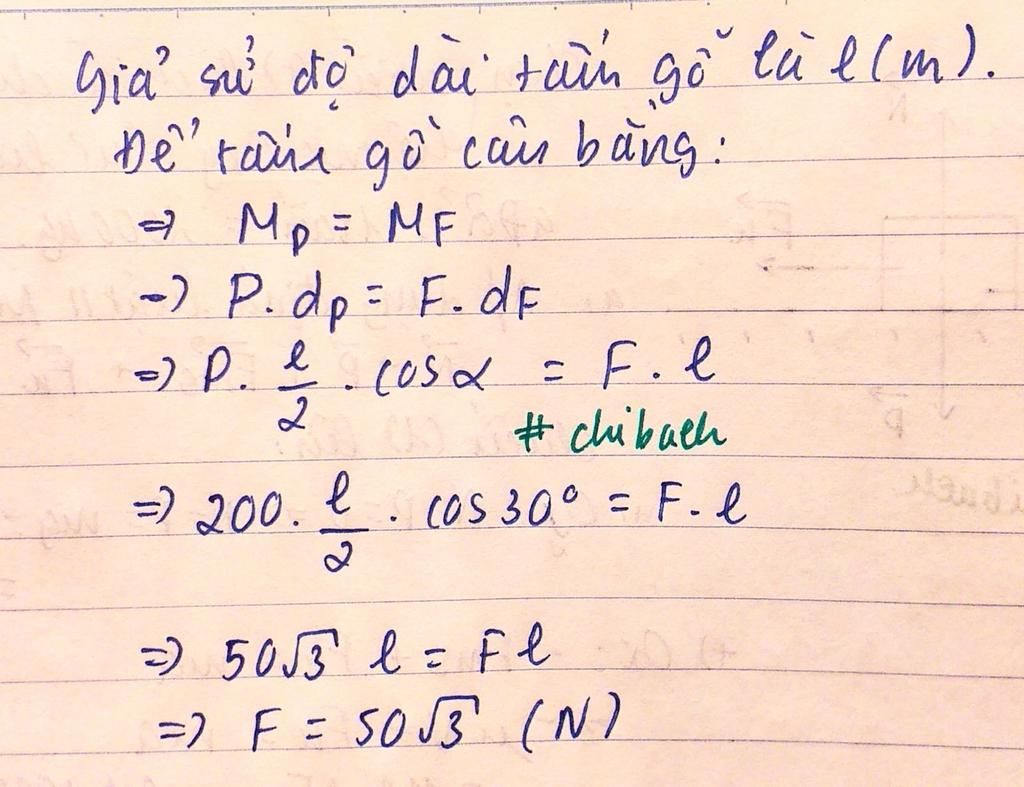 Giả sử độ dài tấm gỗ là l (m).
Để tấm gỗ cân bằng:
=> M_P = M_F
=> P. d_P = F. d_F
=> P. l/2 . cos α = F. l
# chibach
=> 200. l/2 . cos 30° = F. l
=> 50√3 l = F l
=> F = 50√3 (N)